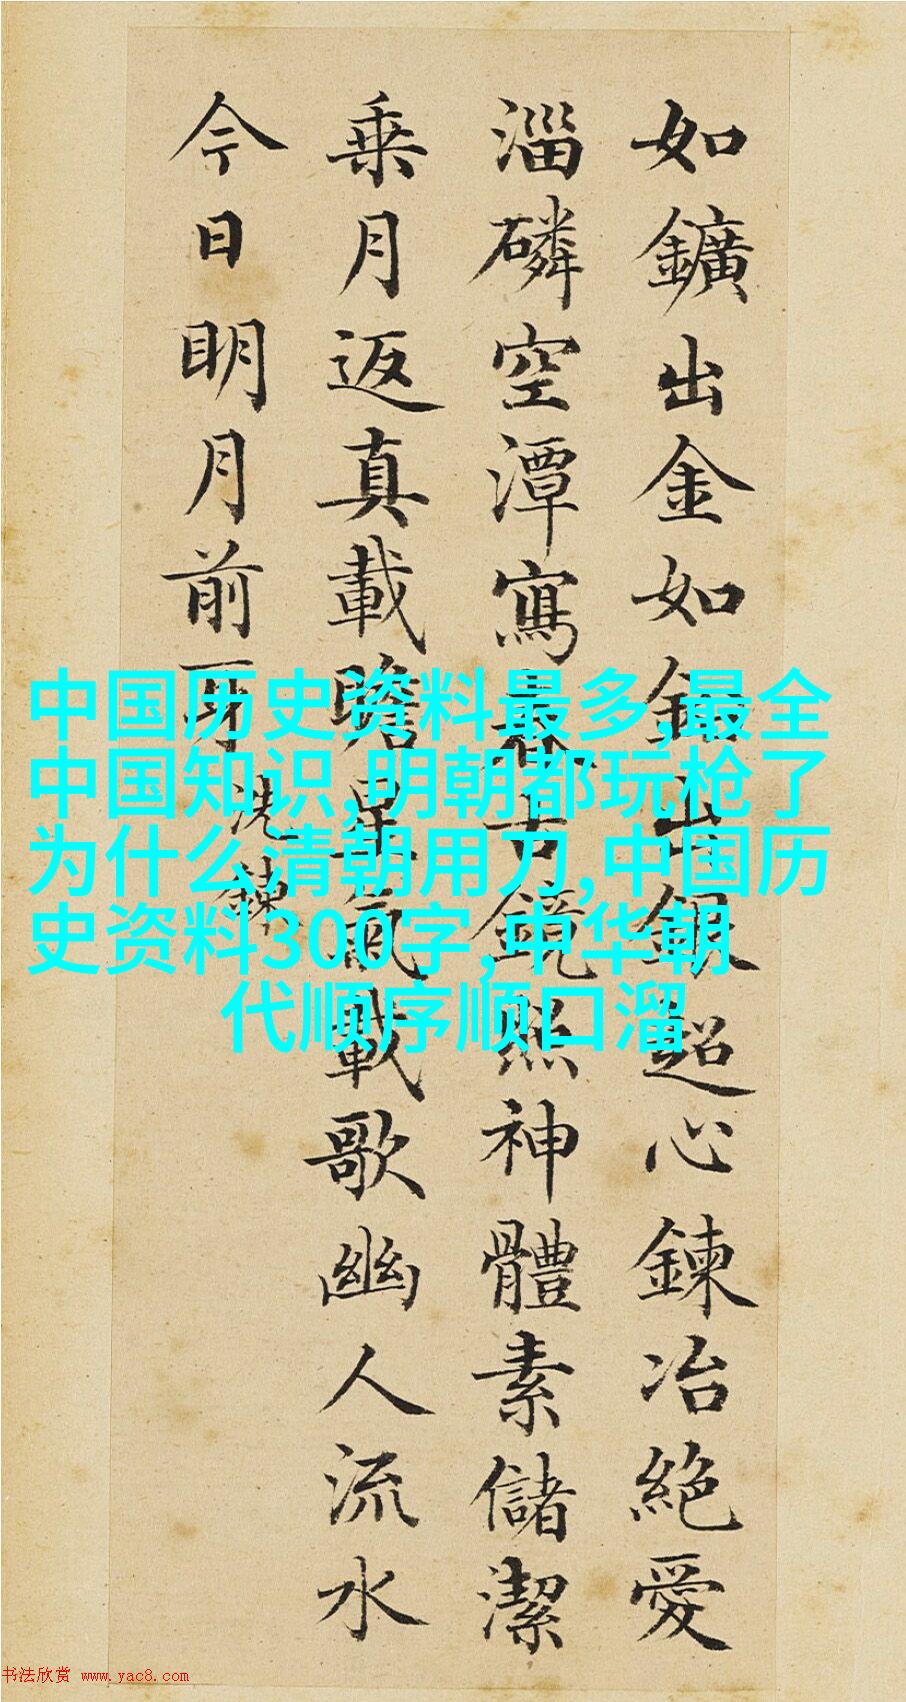 如鑛出金如鉛出銀超心鍊冶絕愛
淄磷空潭寫春古鏡照神體素儲潔
乘月返真載瞻星氣載歌幽人流水
今日明月前身
洗鍊
中国历史资料最多,最全
中国知识,明朝都玩枪了
为什么清朝用刀,中国历
史资料300字,中华朝
代顺序顺口溜
书法欣赏 www.yac8.com